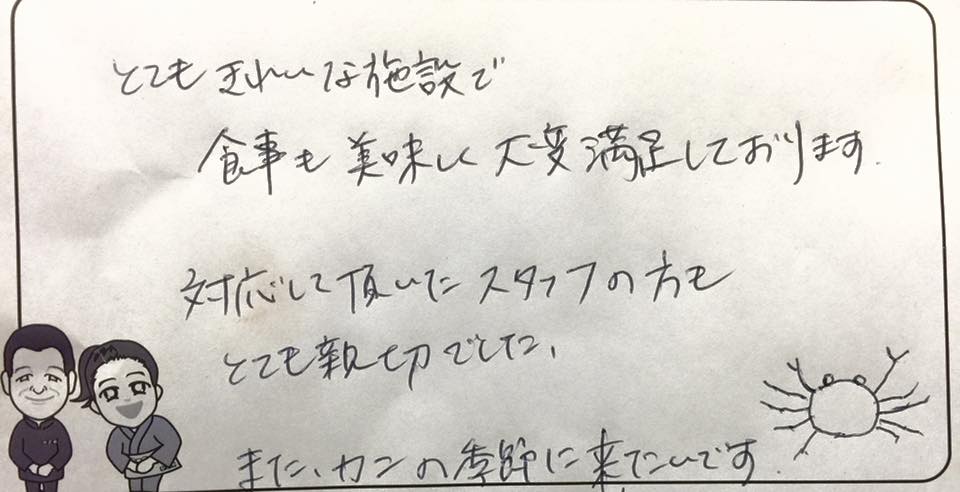 とてもきれいな施設で
食事も美味しく大変満足しております.
対応して頂いたスタッフの方も
とても親切でした、
また、カニの季節に来たいです.